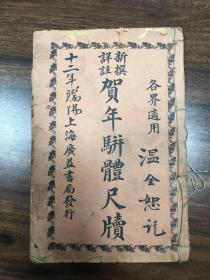 各界適用
溫全恕記
新撰
詳註
賀年駢體尺牘
十二年端陽上海廣益書局發行